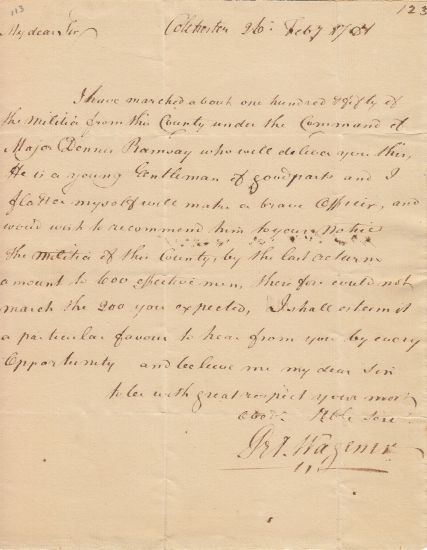 113
123
My dear Sir, Colchester 26th Feby 1781
I have marched about one hundred & fifty of
the Militia from this County under the Command of
Major Dennis Ramsay who will deliver you this,
He is a young Gentleman of good parts and I
flatter myself will make a brave Officer, and
would wish to recommend him to your notice
the Militia of this County, by the last returns
amount to 600 effective men, therefore could not
march the 200 you expected, I shall esteem it
a particular favour to hear from you by every
Opportunity and believe me my dear Sir
to be with great respect your most
obedt. Hble Servt.
Wagener